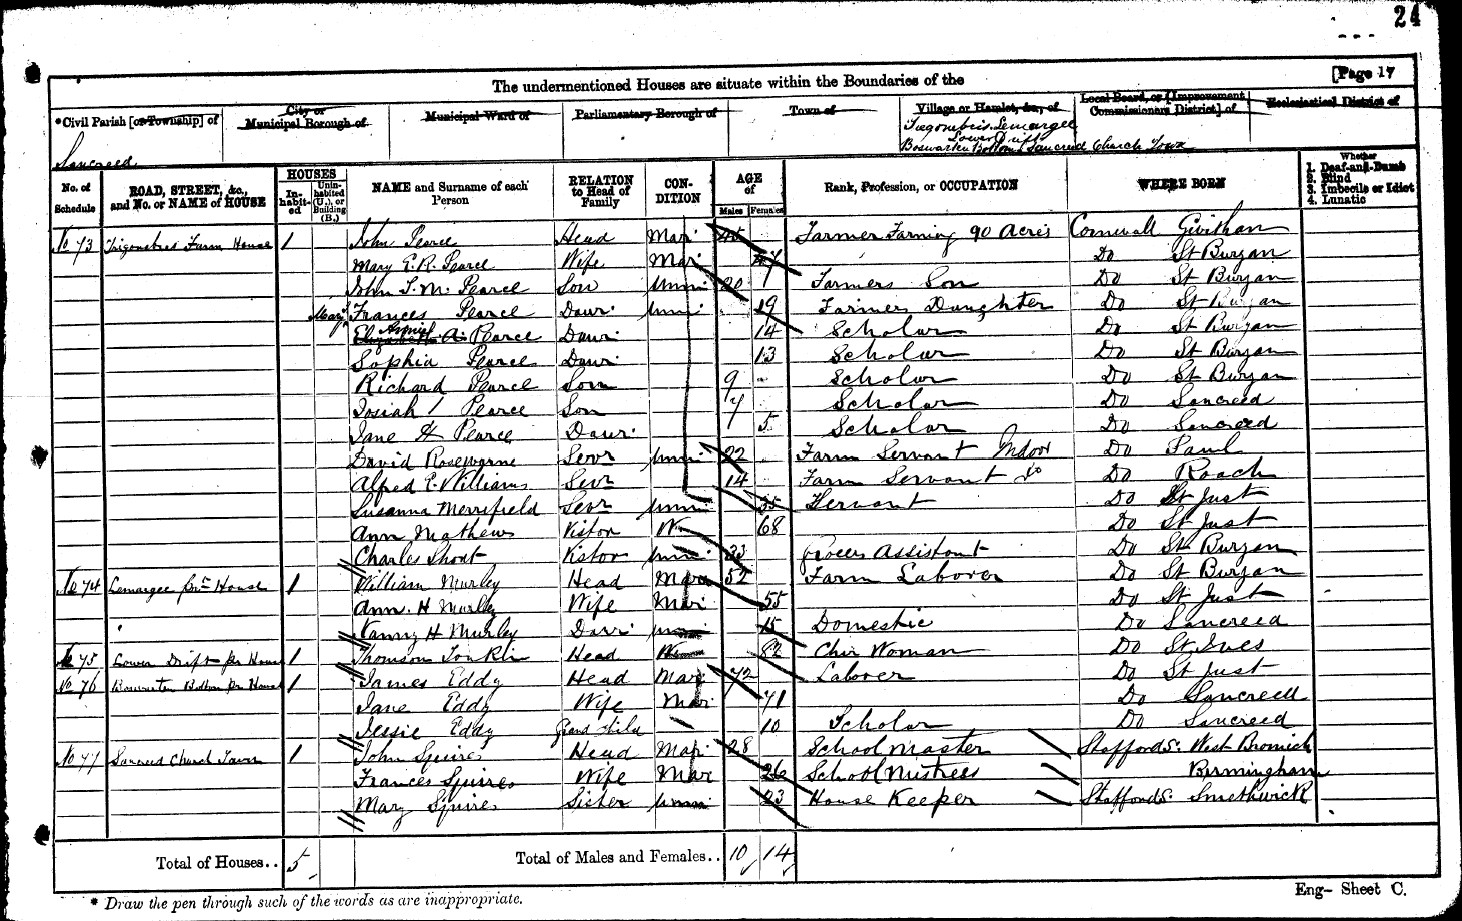 24
[Page 17
The undermentioned Houses are situate within the Boundaries of the
*Civil Parish [or Township] of
City or Municipal Borough of
Municipal Ward of
Parliamentary Borough of
Town of
Village or Hamlet, &c., of
Local Board, or [Improvement Commissioners District] of
Ecclesiastical District of
Sancreed
Lower Drift
Bottom Sancreed Church Town
No. of Schedule
ROAD, STREET, &c., and No. or NAME of HOUSE
HOUSES
In-habit-ed
Unin-habited (U.), or Building (B.)
NAME and Surname of each Person
RELATION to Head of Family
CON-DITION
AGE of
Males
Females
Rank, Profession, or OCCUPATION
WHERE BORN
Whether
1. Deaf-and-Dumb
2. Blind
3. Imbecile or Idiot
4. Lunatic
No 73 Farm House 1 John Pearce Head Mar 45 Farmer Farming 90 Acres Cornwall Gwithan
Mary E. R. Pearce Wife Mar 47 Do St Buryan
John T. M. Pearce Son Unm 20 Farmers Son Do St Buryan
Mary Frances Pearce Daur 19 Farmers Daughter Do St Buryan
A. Pearce Daur 14 Scholar Do St Buryan
Sophia Pearce Daur 13 Scholar Do St Buryan
Richard Pearce Son 9 Scholar Do St Buryan
Josiah Pearce Son 7 Scholar Do Sancreed
Jane H Pearce Daur 5 Scholar Do Sancreed
David Rosewarne Serv Unm 22 Farm Servant Indoor Do Paul
Alfred E. Williams Serv 14 Farm Servant Do Do Roach
Susanna Merrifield Serv Unm 35 Servant Do St Just
Ann Mathews Visitor W 68 Do St Just
Charles Short Visitor Unm 23 Grocers Assistant Do St Buryan
No 74 House 1 William Murley Head Mar 52 Farm Laborer Do St Buryan
Ann. H Murley Wife Mar 55 Do St Just
Nanny H Murley Daur 15 Domestic Do Sancreed
No 75 Lower Drift House 1 Thomson Tonkin Head 82 Char Woman Do St Ives
No 76 Bottom House 1 James Eddy Head Mar 72 Laborer Do St Just
Jane Eddy Wife Mar 71 Do Sancreed
Jessie Eddy Grand Child 10 Scholar Do Sancreed
No 77 Sancreed Church Town 1 John Squires Head Mar 28 School Master Staffords: West Bromich
Frances Squires Wife Mar 26 School Mistress Birmingham
Mary Squires Sister Unm 23 House Keeper Staffords: Smethwick
Total of Houses.. 5
Total of Males and Females.. 10 14
* Draw the pen through such of the words as are inappropriate.
Eng- Sheet C.